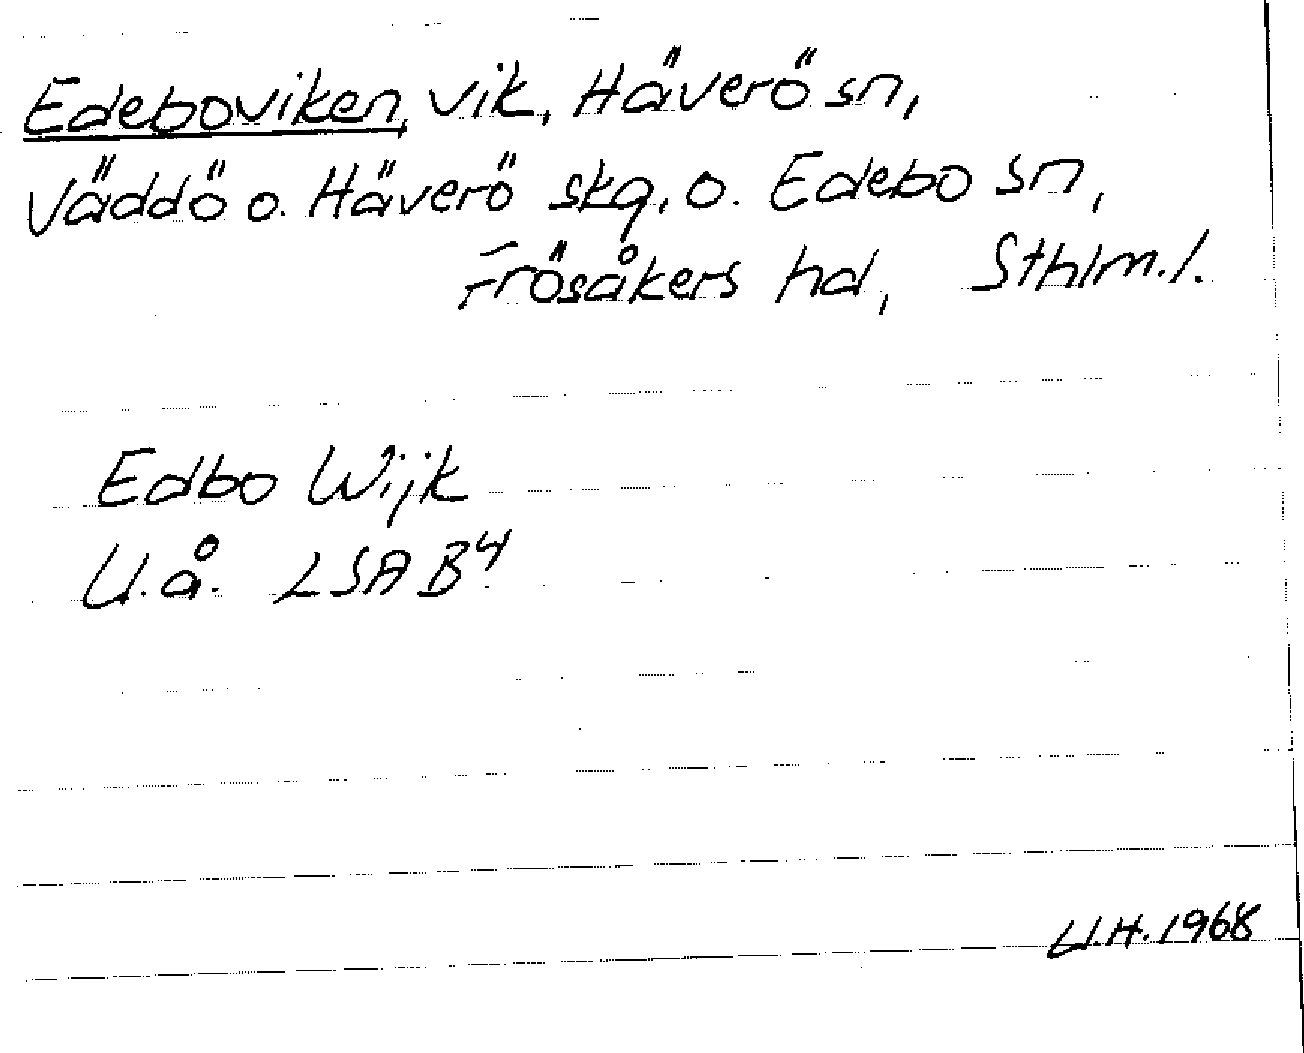 Edeboviken, vik, Häverö sn,
Väddö o. Häverö skg, o. Edebo sn,
Frösåkers hd, Sthlm.l.
Edbo Wijk
U.å. LSA B4
U.H. 1968